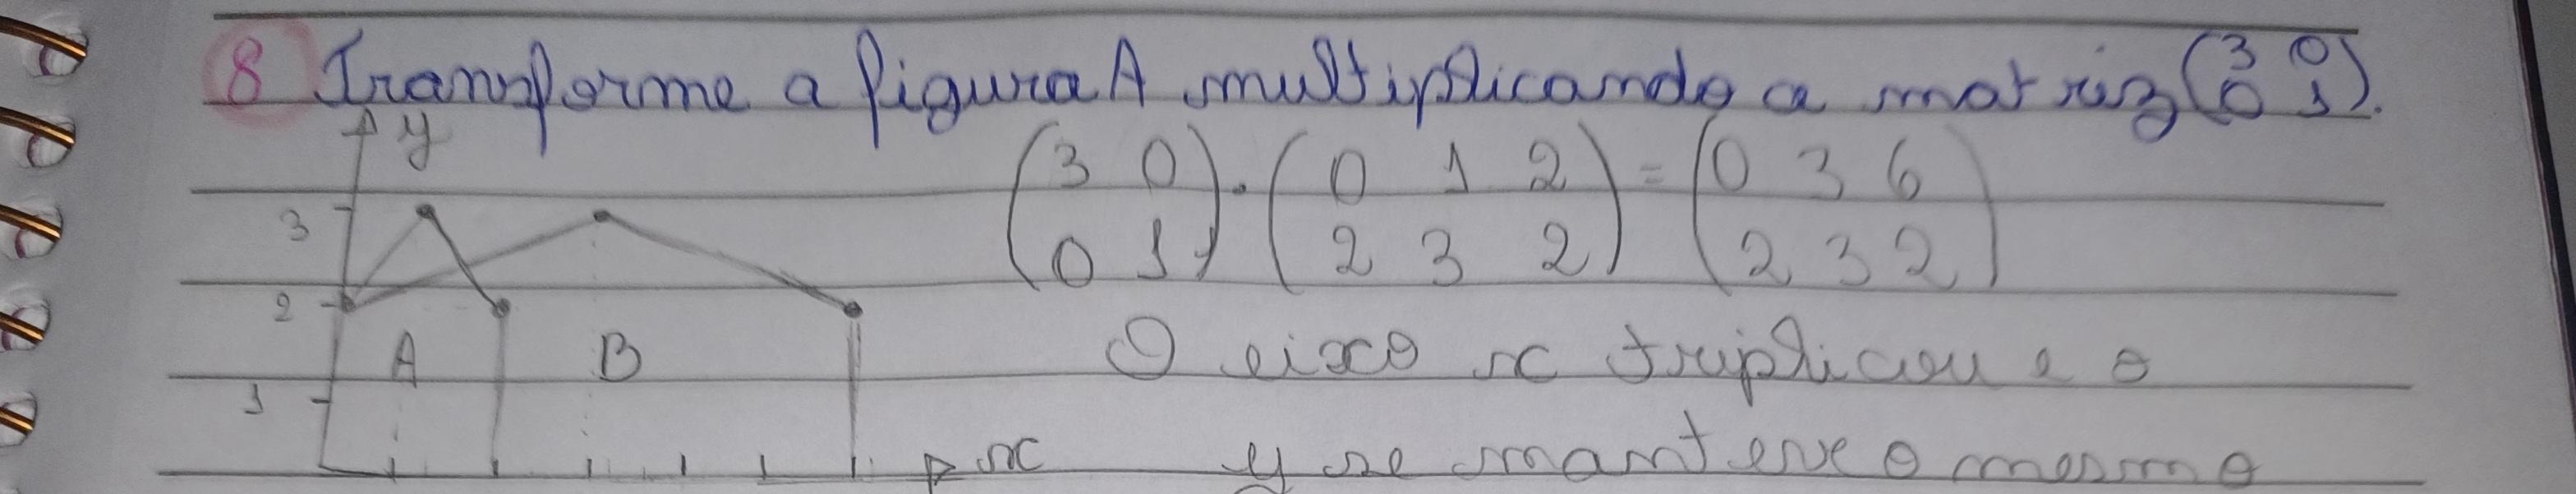 8 Transforme a figura A multiplicando a matriz (3 0
0 1).
y
(3 0
0 1) . (0 1 2
2 3 2) = (0 3 6
2 3 2)
3
2
A B
1
x
O eixo x triplicou e o
y se manteve o mesmo